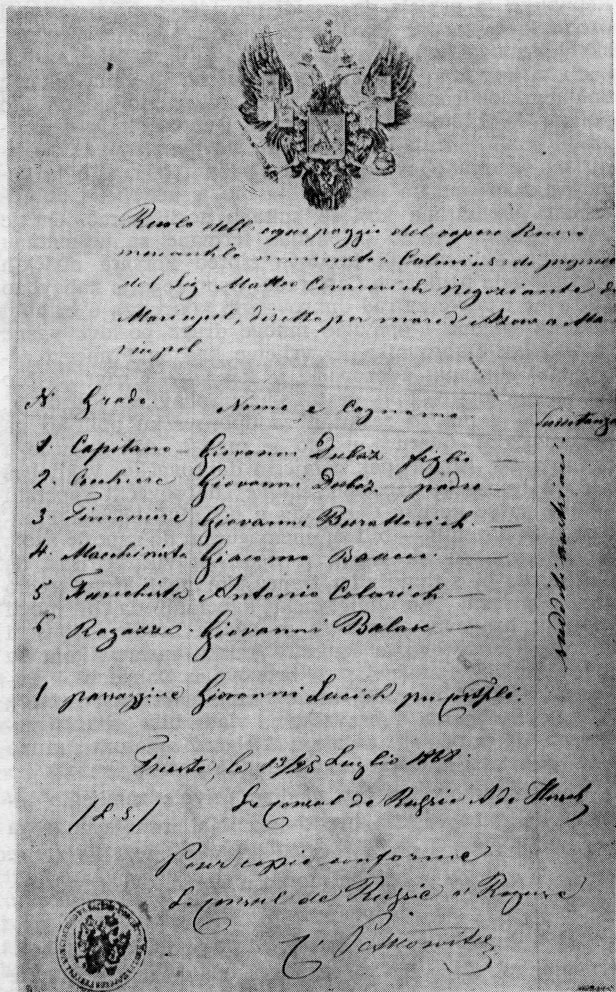 Ruolo dell'equipaggio del vapore Russo
mercantile nominato Calmius di proprietà
del Sig Matteo Cevacovich Negoziante di
Mariupol, diretto per mare d'Azow a Ma
riupol
N Grado. Nome e Cognome. Sussistenza
1. Capitano - Giovanni Duboz figlio —
2. Giovanni Duboz padre —
3. Timoniere Giovanni Burattovich —
4. Macchinista Giacomo —
5 Fuochista Antonio —
6 Ragazzo - Giovanni Balase —
sudditi austriaci
1 passaggiere Giovanni Lucich per
Trieste, le 13/25 Luglio 1868.
/L. S/ Le consul de Russie A de
Pour copie conforme
Le consul de Russie à Raguse